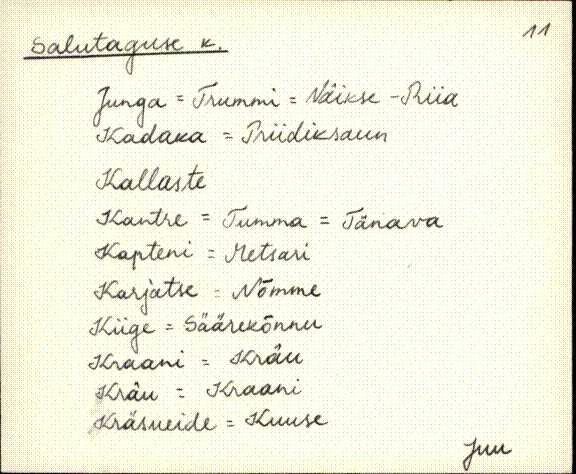 Salutaguse k.
11
Junga = Trummi = Näikse - Riia
Kadaka = Priidiksaun
Kallaste
Kantre = Tumma = Tänava
Kapteni = Metsari
Karjatse = Nõmme
Kiige = Säärekõnnu
Kraani = Kräu
Kräu = Kraani
Kräsneide = Kuuse
Juu